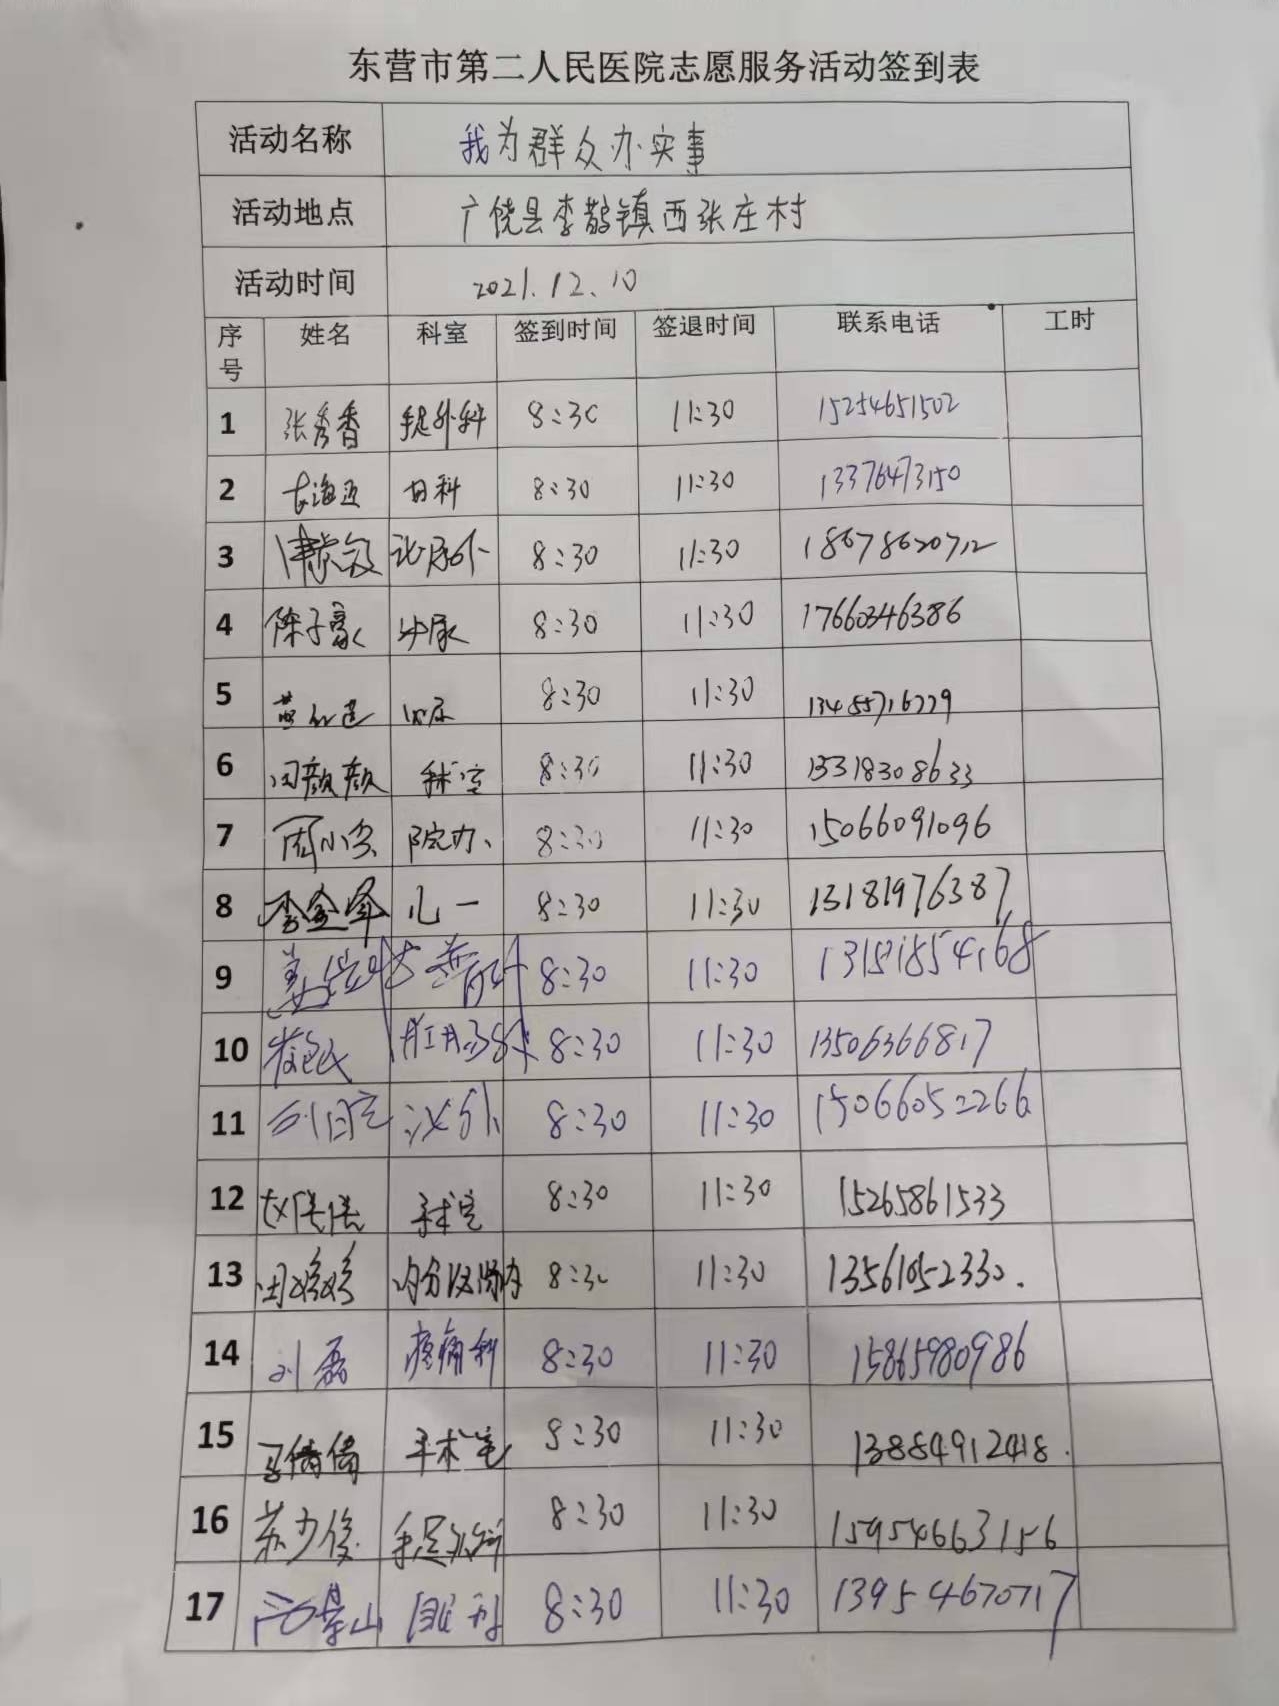 东营市第二人民医院志愿服务活动签到表
活动名称 我为群众办实事
活动地点 广饶县李鹊镇西张庄村
活动时间 2021.12.10
序号 姓名 科室 签到时间 签退时间 联系电话 工时
1 张秀香 手足外科 8:30 11:30 15254651502
2 8:30 11:30 13376473150
3 泌尿外 8:30 11:30 18678620712
4 陈子豪 泌尿 8:30 11:30 17660346386
5 泌尿 8:30 11:30 13455716779
6 闫颜颜 手术室 8:30 11:30 13318308633
7 院办 8:30 11:30 15066091096
8 李金军 儿一 8:30 11:30 13181976387
9 8:30 11:30 13181854168
10 肛肠外科 8:30 11:30 13506366817
11 泌外 8:30 11:30 15066052266
12 赵倩倩 手术室 8:30 11:30 15265861533
13 内分泌肾内 8:30 11:30 13561052330.
14 刘磊 疼痛科 8:30 11:30 15865980986
15 马倩倩 手术室 8:30 11:30 13884912418.
16 苏少俊 手足外科 8:30 11:30 15954663156
17 眼科 8:30 11:30 13954670717